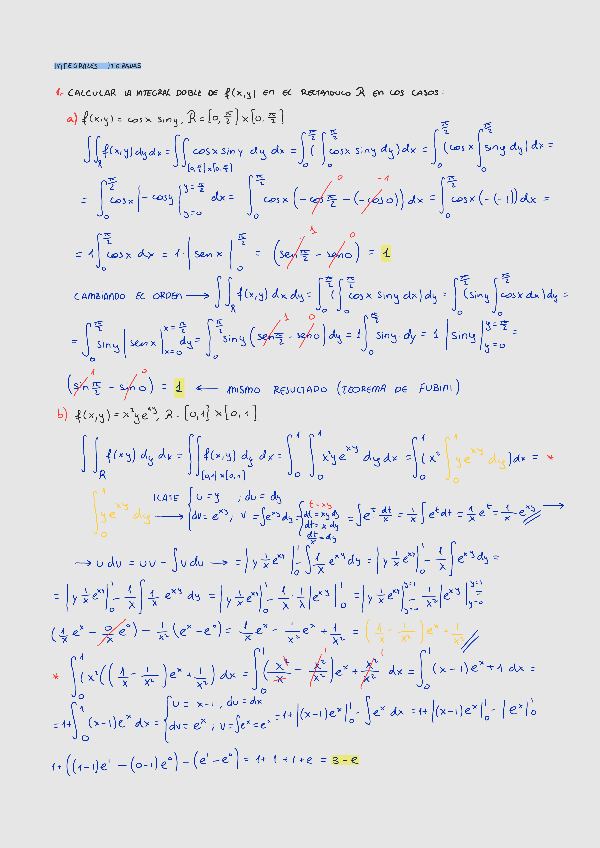 INTEGRALES ITERADAS
1. CALCULAR LA INTEGRAL DOBLE DE f(x,y) EN EL RECTÁNGULO R EN LOS CASOS:
a) f(x,y) = cosx siny, R = [0, π/2] x [0, π/2]
∫∫_R f(x,y) dy dx = ∫∫_[0,π/2]x[0,π/2] cosx siny dy dx = ∫_0^π/2 (∫_0^π/2 cosx siny dy) dx = ∫_0^π/2 (cosx ∫_0^π/2 siny dy) dx =
= ∫_0^π/2 cosx |-cosy|_y=0^y=π/2 dx = ∫_0^π/2 cosx (-cos π/2 - (-cos 0)) dx = ∫_0^π/2 cosx (-(-1)) dx =
= 1 ∫_0^π/2 cosx dx = 1 · |senx|_0^π/2 = (sen π/2 - sen 0) = 1
CAMBIANDO EL ORDEN → ∫∫_R f(x,y) dx dy = ∫_0^π/2 (∫_0^π/2 cosx siny dx) dy = ∫_0^π/2 (siny ∫_0^π/2 cosx dx) dy =
= ∫_0^π/2 siny |senx|_x=0^x=π/2 dy = ∫_0^π/2 siny (sen π/2 - sen 0) dy = 1 ∫_0^π/2 siny dy = 1 |siny|_y=0^y=π/2 =
(sin π/2 - sin 0) = 1 ← MISMO RESULTADO (TEOREMA DE FUBINI)
b) f(x,y) = x²ye^xy, R = [0,1] x [0,1]
∫∫_R f(x,y) dy dx = ∫∫_[0,1]x[0,1] f(x,y) dy dx = ∫_0^1 ∫_0^1 x²ye^xy dy dx = ∫_0^1 (x² ∫_0^1 ye^xy dy) dx = *
∫_0^1 ye^xy dy → ILATE { u = y ; du = dy
dv = e^xy ; v = ∫e^xy dy = { t = xy
dt = xy dy
dt = x dy
dt/x = dy
= ∫e^t dt/x = 1/x ∫e^t dt = 1/x e^t = 1/x · e^xy →
→ u dv = uv - ∫v du → = |y 1/x e^xy|_0^1 - ∫_0^1 1/x e^xy dy = |y 1/x e^xy|_0^1 - 1/x ∫e^xy dy =
= |y 1/x e^xy|_0^1 - 1/x ∫_0^1 e^xy dy = |y 1/x e^xy|_0^1 - 1/x · 1/x |e^xy|_0^1 = |y 1/x e^xy|_y=0^y=1 - 1/x² |e^xy|_y=0^y=1
(1/x e^x - 0/x e^0) - 1/x² (e^x - e^0) = 1/x e^x - 1/x² e^x + 1/x² = (1/x - 1/x²) e^x + 1/x²
* ∫_0^1 (x² ((1/x - 1/x²) e^x + 1/x²) dx = ∫_0^1 (x²/x - x²/x²) e^x + x²/x² dx = ∫_0^1 (x-1) e^x + 1 dx =
= 1 + ∫_0^1 (x-1) e^x dx = { u = x-1 , du = dx
dv = e^x ; v = ∫e^x = e^x
= 1 + |(x-1)e^x|_0^1 - ∫e^x dx = 1 + |(x-1)e^x|_0^1 - |e^x|_0^1
1 + ((1-1)e^1 - (0-1)e^0) - (e^1 - e^0) = 1 + 1 + 1 + e = 3 - e